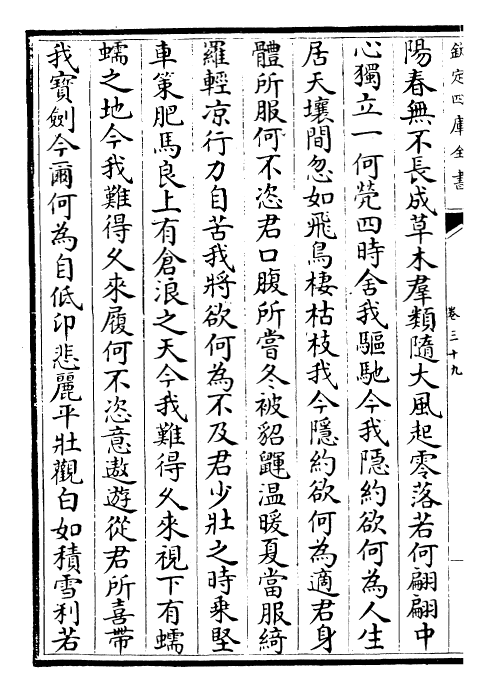 欽定四庫全書
卷三十九
陽春無不長成草木羣類隨大風起零落若何翩翩中
心獨立一何煢四時舍我驅馳今我隱約欲何為人生
居天壤間忽如飛鳥棲枯枝我今隱約欲何為適君身
體所服何不恣君口腹所嘗冬被貂鼲温暖夏當服綺
羅輕凉行力自苦我將欲何為不及君少壯之時乘堅
車策肥馬良上有倉浪之天今我難得久來視下有蠕
蠕之地今我難得久來履何不恣意遨遊從君所喜帶
我寶劍今爾何為自低卭悲麗平壯觀白如積雪利若